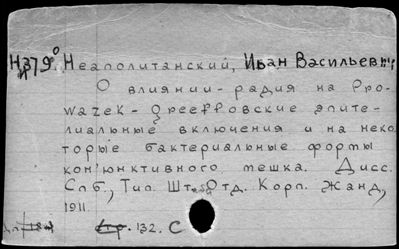 Неаполитанский, Иван Васильевич,
О влиянии радия на Pro-
wazek-Greeffовские эпите-
лиальные включения и на неко-
торые бактериальные формы
кон'юнктивного мешка. Дисс.
Спб., Тип. Шт. Отд. Корп. Жанд.,
1911.
стр. 132. С